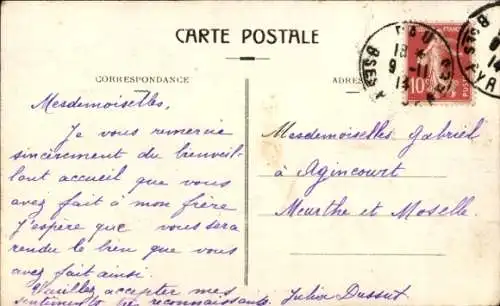 CARTE POSTALE
CORRESPONDANCE
ADRES
PAU
18
9-11
14
BSES
PYR
10c
POSTES
Mesdemoiselles,
Je vous remercie
sincèrement du bienveil-
lant accueil que vous
avez fait à mon frère
J'espère que vous sera
rendu le bien que vous
avez fait ainsi.
Veuillez accepter mes
sentiments très reconnaissants.
Mesdemoiselles Gabriel
à Agincourt
Meurthe et Moselle
Julien Dussut